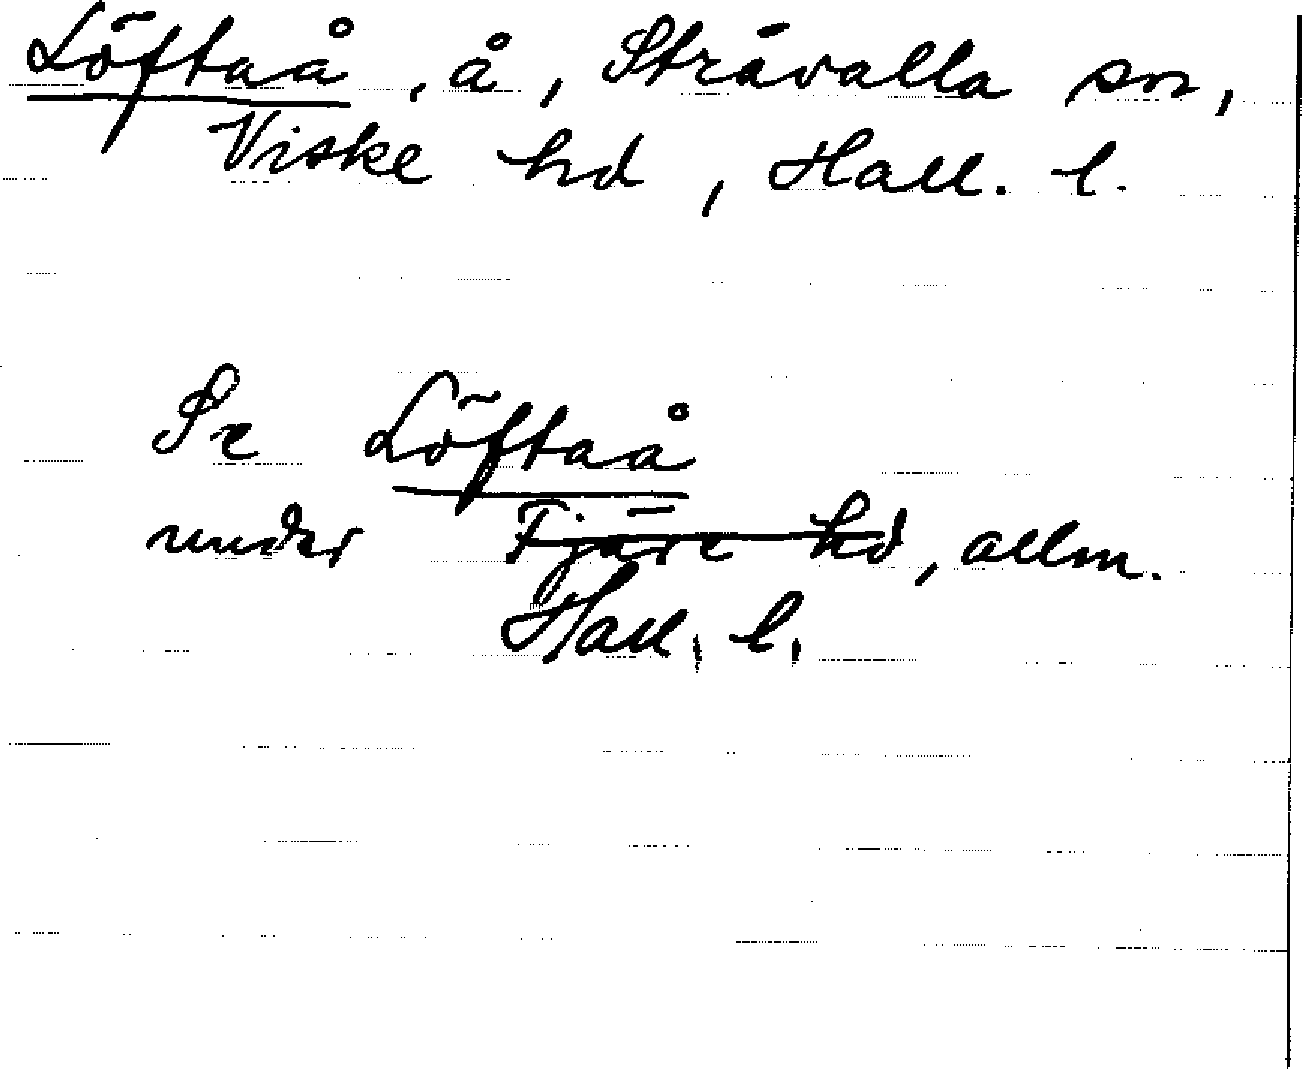 Löftaå, å, Strävalla sn,
Viske hd, Hall. l.
Se Löftaå
under Fjäre hd, allm.
Hall. l.